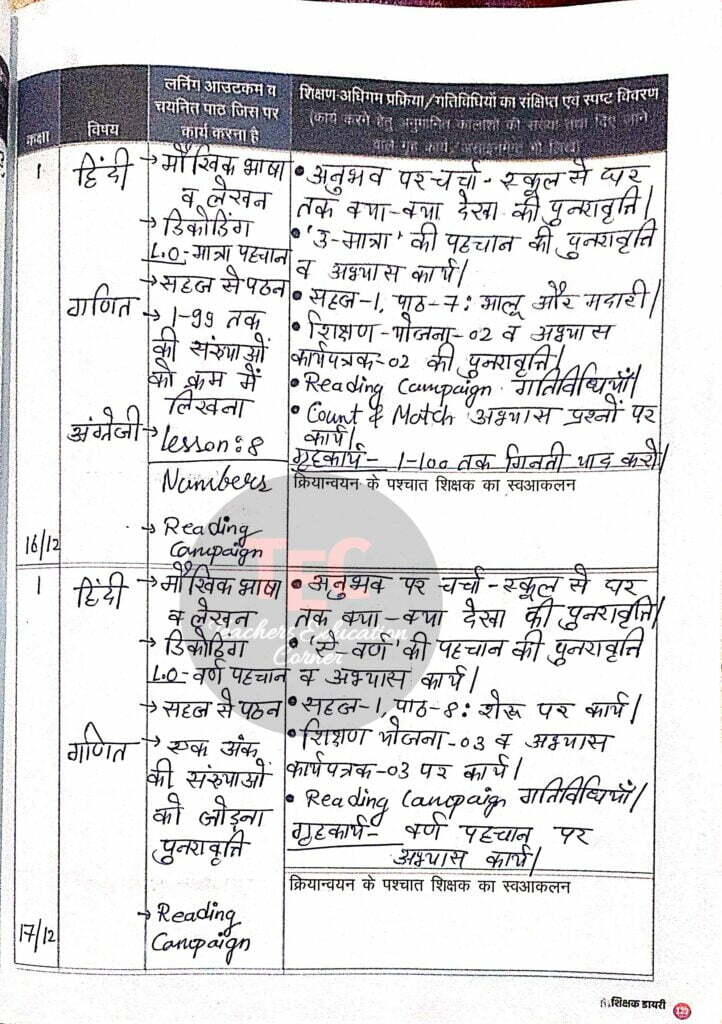 कक्षा
विषय
लर्निंग आउटकम व
चयनित पाठ जिस पर
कार्य करना है
शिक्षण-अधिगम प्रक्रिया/गतिविधियों का संक्षिप्त एवं स्पष्ट विवरण
(कार्य करने हेतु अनुमानित कालांशों की संख्या तथा दिए जाने
वाले गृह कार्य
1
हिंदी
→ मौखिक भाषा
व लेखन
→ डिकोडिंग
L.O-मात्रा पहचान
→ सहज से पठन
गणित
→ 1-99 तक
की संख्याओं
को क्रम में
लिखना
अंग्रेजी
→ Lesson: 8
Numbers
→ Reading
Campaign
• अनुभव पर चर्चा - स्कूल से घर
तक क्या-क्या देखा की पुनरावृत्ति।
• 'उ-मात्रा' की पहचान की पुनरावृत्ति
व अभ्यास कार्य।
• सहज-1, पाठ-7: भालू और मदारी।
• शिक्षण-योजना-02 व अभ्यास
कार्यपत्रक-02 की पुनरावृत्ति।
• Reading Campaign गतिविधियाँ।
• Count & Match अभ्यास प्रश्नों पर
कार्य।
गृहकार्य- 1-100 तक गिनती याद करो।
क्रियान्वयन के पश्चात शिक्षक का स्वआकलन
16/12
TEC
Teachers Education
Corner
1
हिंदी
→ मौखिक भाषा
व लेखन
→ डिकोडिंग
L.O-वर्ण पहचान
→ सहज से पठन
गणित
→ एक अंक
की संख्याओं
को जोड़ना
पुनरावृत्ति
→ Reading
Campaign
• अनुभव पर चर्चा - स्कूल से घर
तक क्या-क्या देखा की पुनरावृत्ति।
की पहचान की पुनरावृत्ति
व अभ्यास कार्य।
• सहज-1, पाठ-8: शेरू पर कार्य।
• शिक्षण योजना-03 व अभ्यास
कार्यपत्रक-03 पर कार्य।
• Reading Campaign गतिविधियाँ।
गृहकार्य- वर्ण पहचान पर
अभ्यास कार्य।
क्रियान्वयन के पश्चात शिक्षक का स्वआकलन
17/12
शिक्षक डायरी
129